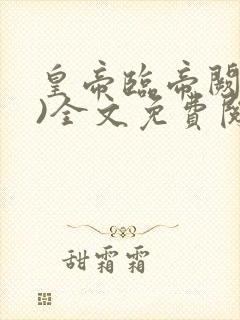 皇帝臨帝闕
)全文免費閱
甜霜霜